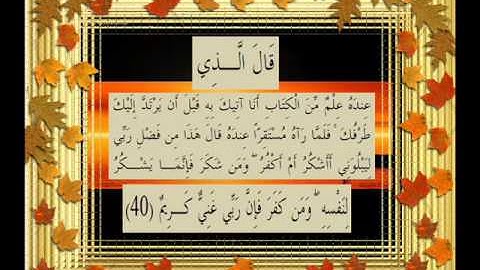 قَالَ الَّـــذِي
عِندَهُ عِلْمٌ مِّنَ الْكِتَابِ أَنَا آتِيكَ بِهِ قَبْلَ أَن يَرْتَدَّ إِلَيْكَ
طَرْفُكَ ۚ فَلَمَّا رَآهُ مُسْتَقِرًّا عِندَهُ قَالَ هَٰذَا مِن فَضْلِ رَبِّي
لِيَبْلُوَنِي أَأَشْكُرُ أَمْ أَكْفُرُ ۖ وَمَن شَكَرَ فَإِنَّمَا يَشْـــكُرُ
لِنَفْسِهِ ۖ وَمَن كَفَرَ فَإِنَّ رَبِّي غَنِيٌّ كَـــرِيمٌ (40)